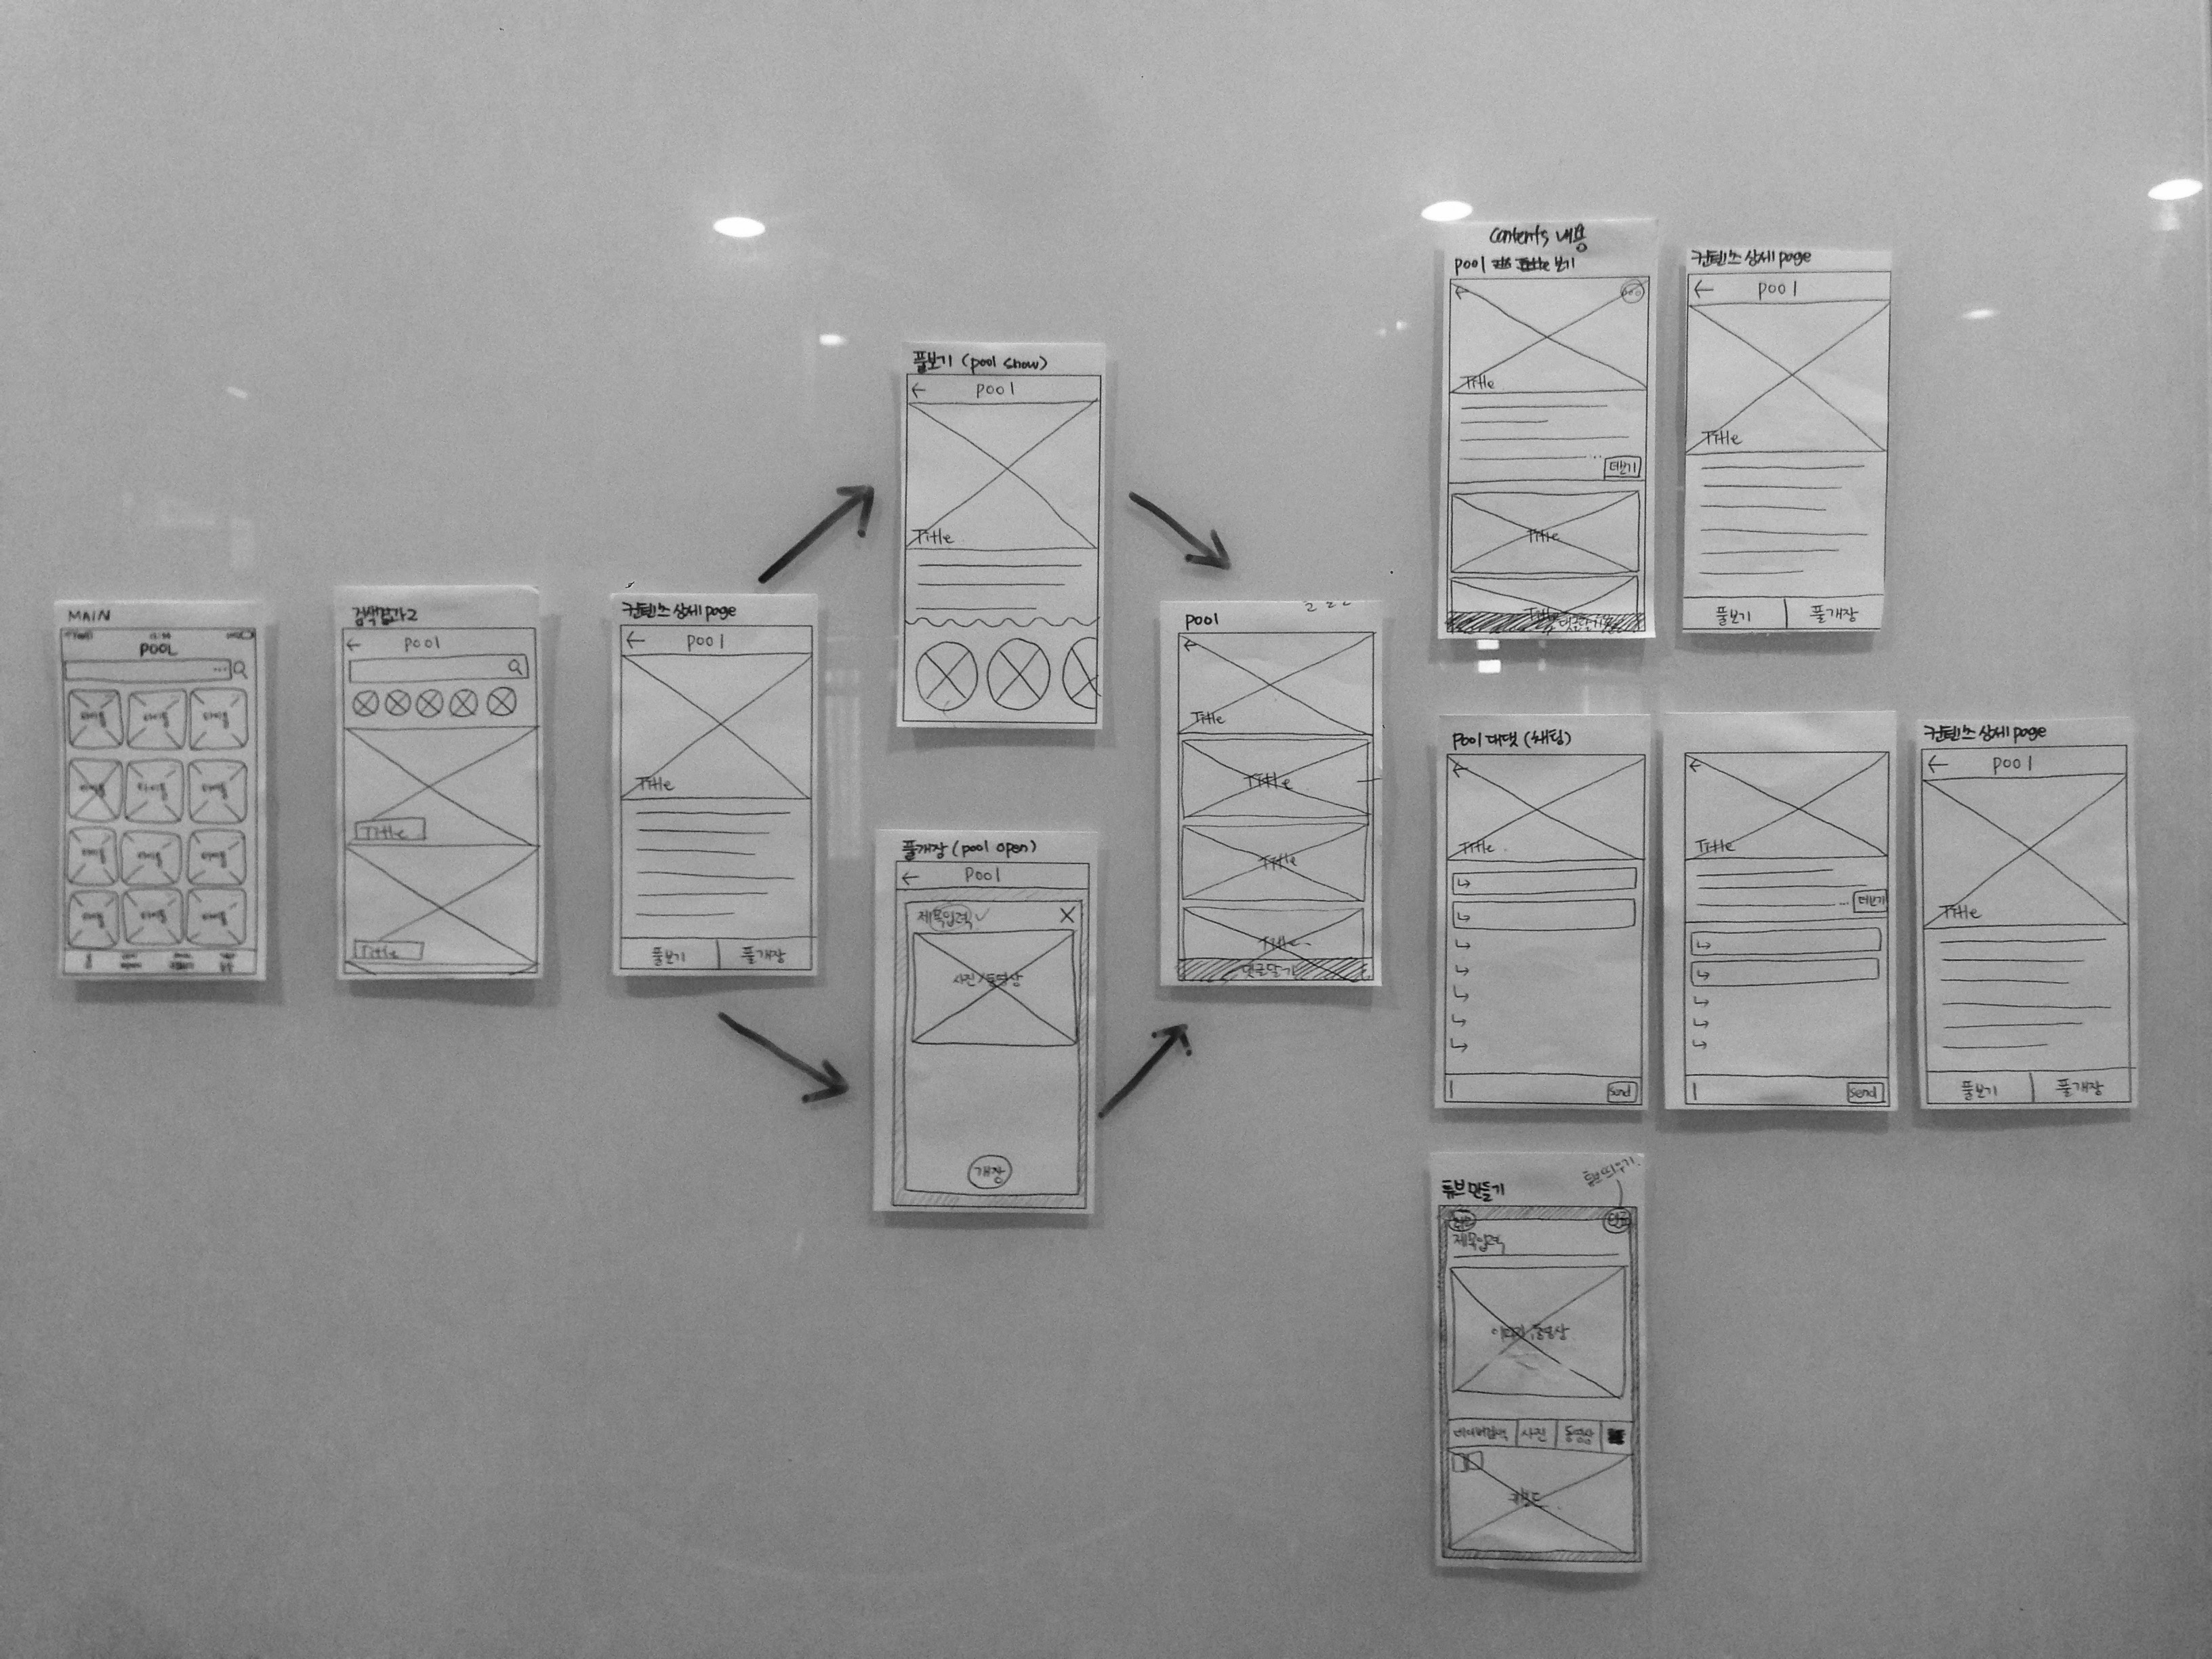 MAIN
POOL
검색결과2
pool
Title
Title
컨텐츠 상세 page
pool
Title
풀보기
풀개장
풀보기 (pool show)
pool
Title
풀개장 (pool open)
pool
제목입력
X
사진/동영상
개장
pool
Title
Title
Title
Title
댓글달기
contents 내용
pool
보기
Title
더보기
Title
Title
컨텐츠 상세 page
pool
Title
풀보기
풀개장
pool 대댓 (채팅)
Title
Send
Title
더보기
Send
컨텐츠 상세 page
pool
Title
풀보기
풀개장
튜브 만들기
튜브띄우기
제목입력
네이버검색
사진
동영상
키보드